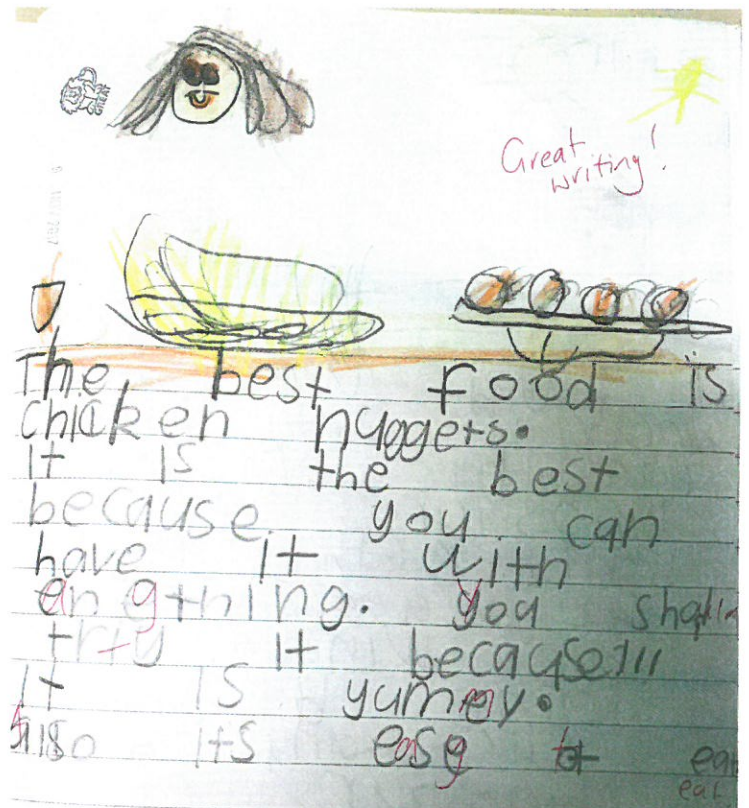 Great
writing!
The best food is
chicken nuggets.
It is the best
because you can
have it with
anything. you
try it because!!!
It is yummy.
Also its easy to eat
eat